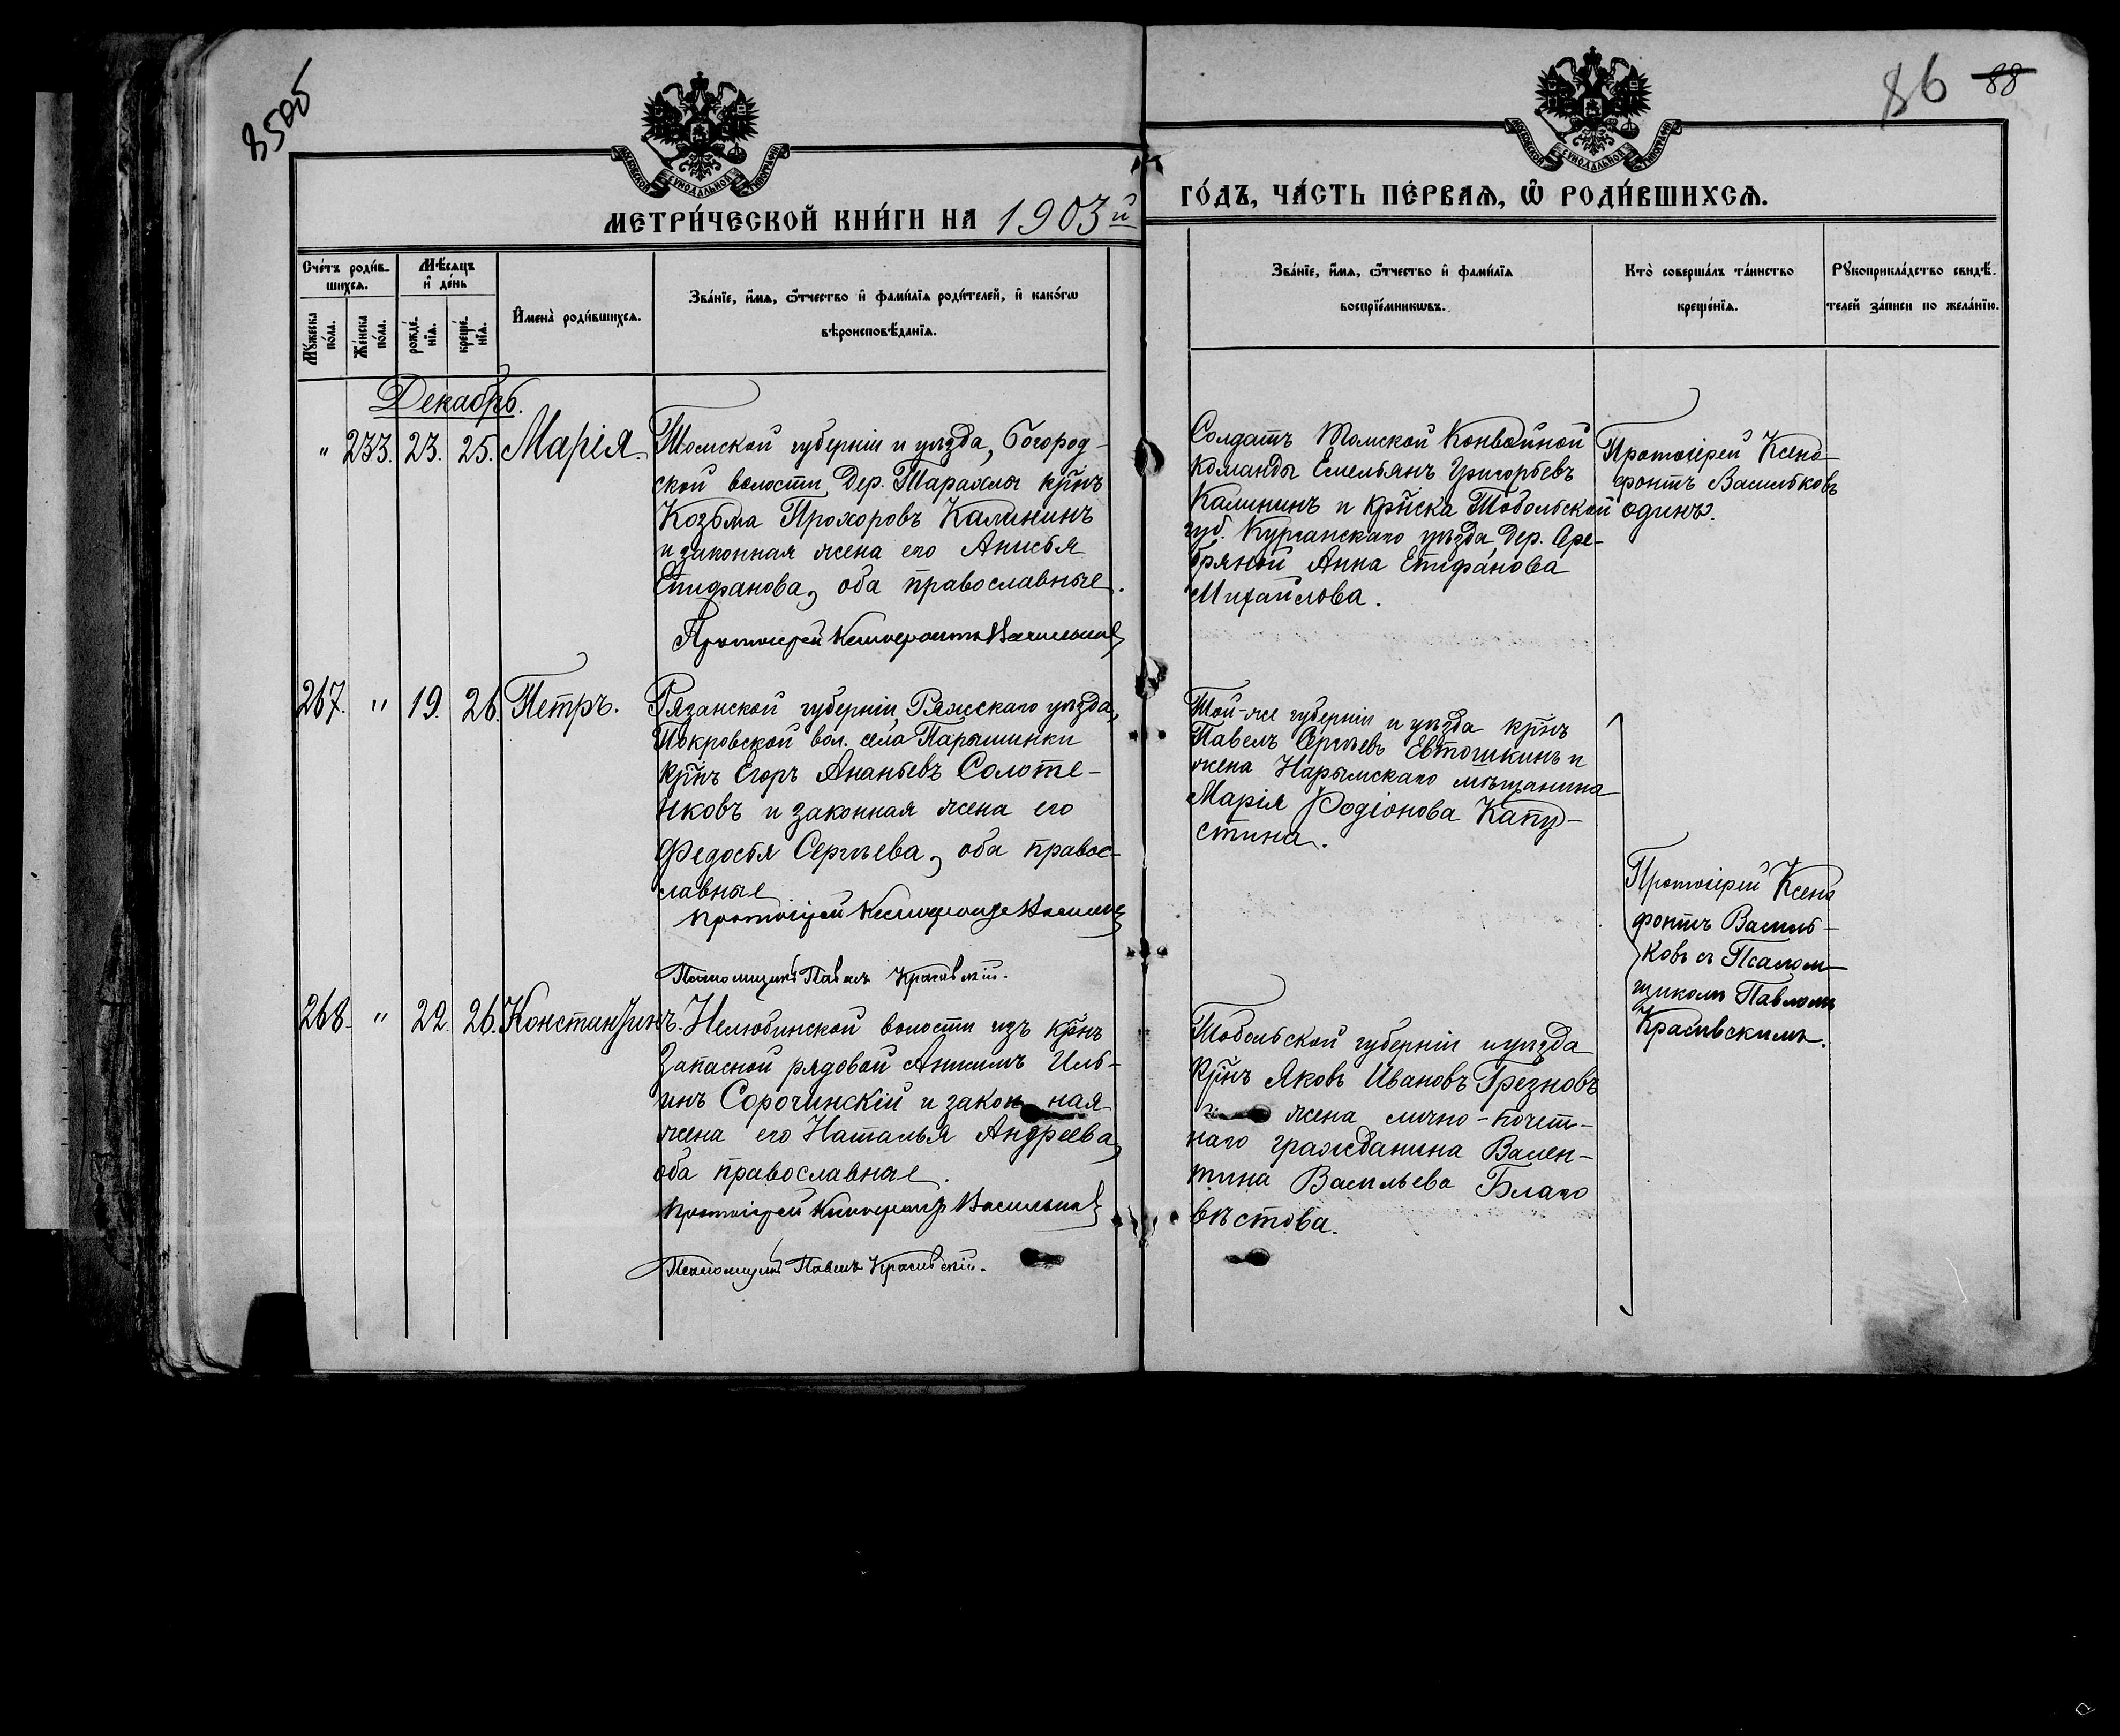 85об
86 88
МОСКОВСКОЙ СУНОДАЛЬНОЙ ТИПОГРАФІИ
МОСКОВСКОЙ СУНОДАЛЬНОЙ ТИПОГРАФІИ
МЕТРИ́ЧЕСКОЙ КНИ́ГИ НА 1903й
ГО́ДЪ, ЧА́СТЬ ПЕ́РВАѦ, Ѽ РОДИ́ВШИХСѦ.
Сче́тъ роди́в-
шихсѧ.
Мꙋжеска по́ла.
Же́нска по́ла.
Мѣ́сѧцъ
и҆ де́нь
рожде́-нїѧ.
креще́-нїѧ.
И҆мена̀ роди́вшихсѧ.
Зва́нїе, и҆́мѧ, ѻ҆́тчество и҆ фами́лїѧ роди́телей, и҆ како́гѡ
вѣроисповѣ́данїѧ.
Зва́нїе, и҆́мѧ, ѻ҆́тчество и҆ фами́лїѧ
воспрїе́мникѡвъ.
Кто̀ соверша́лъ та́инство
креще́нїѧ.
Рꙋкоприкла́дство свидѣ́-
телей за́писи по жела́нїю.
Декабрь.
" 233. 23. 25. Марія.
Томской губерніи и уѣзда, Богород-
ской волости Дер. Тарахлы кр̃нъ
Козьма Прохоровъ Калининъ
и законная жена его Анисья
Епифанова, оба православные.
Протоіерей Ксенофонтъ Васильковъ
Солдатъ Томской Конвойной
Команды Емельянъ Григорьевъ
Калининъ и кр̃нска Тобольской
губ. Курганскаго уѣзда Дер. Сре-
бряной Анна Епифанова
Михайлова.
Протоіерей Ксено-
фонтъ Васильковъ
одинъ.
267. " 19. 26. Петръ.
Рязанской губерніи, Ряжскаго уѣзда,
Покровской вол. села Парышинки
кр̃нъ Егоръ Ананьевъ Солоте-
нковъ и законная жена его
Федосья Сергѣева, оба правос-
лавные
Протоіерей Ксенофонтъ Васильковъ
Псаломщикъ Павелъ Красивскій.
Той-же губерніи и уѣзда кр̃нъ
Павелъ Сергѣевъ Евтюшкинъ и
жена Нарымскаго мѣщанина
Марія Родіонова Капу-
стина.
Протоіерей Ксено
фонтъ Василь-
ковъ съ Псалом-
щикомъ Павломъ
Красивскимъ.
268. " 22. 26. Константинъ.
Нелюбинской волости изъ кр̃нъ
Запасной рядовой Анисимъ Иль-
инъ Сорочинскій и закон ная
жена его Наталья Андреева,
оба православные.
Протоіерей Ксенофонтъ Васильковъ
Псаломщикъ Павелъ Красивскій.
Тобольской губерніи и уѣзда
кр̃нъ Яковъ Ивановъ Грезновъ
и жена лично-почет-
наго гражданина Вален-
тина Васильева Благо
вѣстова.